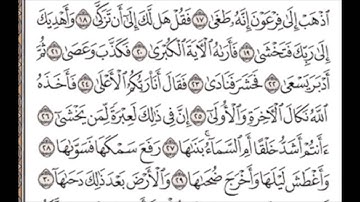 ٱذْهَبْ إِلَىٰ فِرْعَوْنَ إِنَّهُۥ طَغَىٰ ١٧ فَقُلْ هَل لَّكَ إِلَىٰٓ أَن تَزَكَّىٰ ١٨ وَأَهْدِيَكَ
إِلَىٰ رَبِّكَ فَتَخْشَىٰ ١٩ فَأَرَىٰهُ ٱلْـَٔايَةَ ٱلْكُبْرَىٰ ٢٠ فَكَذَّبَ وَعَصَىٰ ٢١ ثُمَّ
أَدْبَرَ يَسْعَىٰ ٢٢ فَحَشَرَ فَنَادَىٰ ٢٣ فَقَالَ أَنَا۠ رَبُّكُمُ ٱلْأَعْلَىٰ ٢٤ فَأَخَذَهُ
ٱللَّهُ نَكَالَ ٱلْـَٔاخِرَةِ وَٱلْأُولَىٰٓ ٢٥ إِنَّ فِى ذَٰلِكَ لَعِبْرَةً لِّمَن يَخْشَىٰٓ ٢٦
ءَأَنتُمْ أَشَدُّ خَلْقًا أَمِ ٱلسَّمَآءُ ۚ بَنَىٰهَا ٢٧ رَفَعَ سَمْكَهَا فَسَوَّىٰهَا ٢٨
وَأَغْطَشَ لَيْلَهَا وَأَخْرَجَ ضُحَىٰهَا ٢٩ وَٱلْأَرْضَ بَعْدَ ذَٰلِكَ دَحَىٰهَآ ٣٠